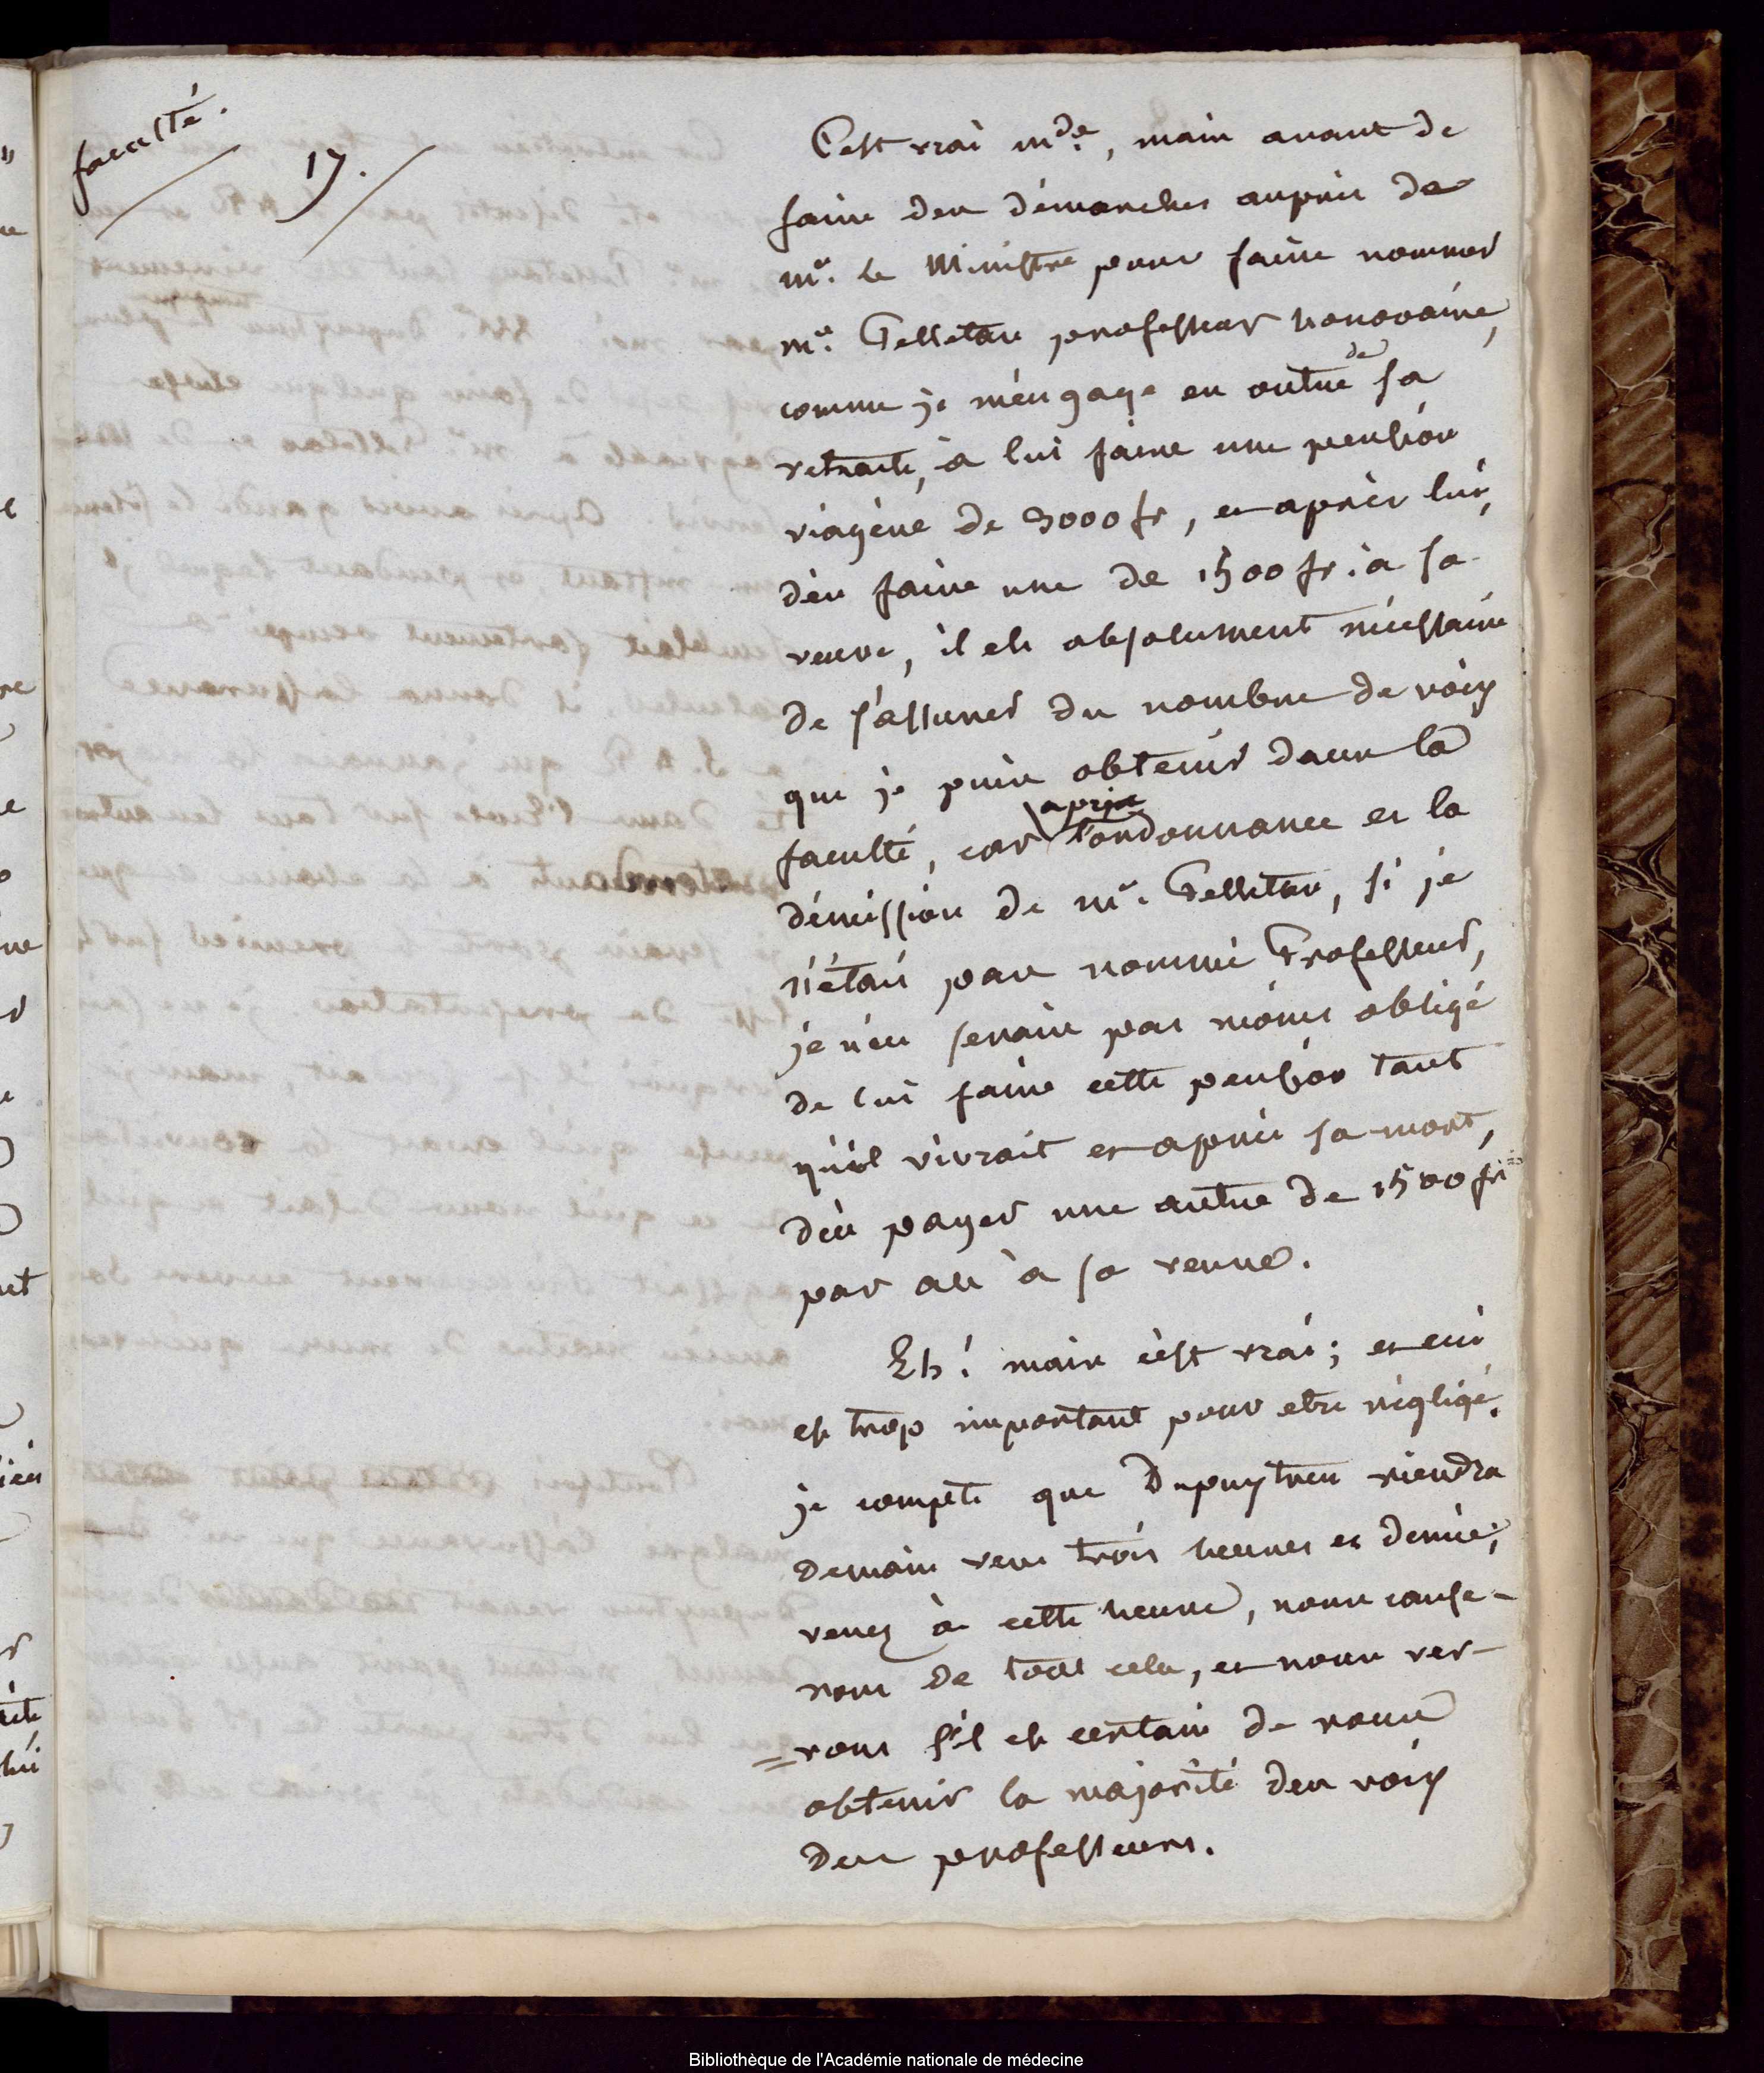 faculté.
17.
C'est vrai mde., mais avant de
faire des démarches auprès de
mr. le Ministre pour faire nommer
mr. Pelletan professeur honoraire,
comme je m'engage en outre de sa
retraite, à lui faire une pension
viagère de 3000 fr, et après lui,
d'en faire une de 1500 fr. à sa
veuve, il est absolument nécessaire
de s'assurer du nombre de voix
que je puis obtenir dans la
faculté, car après l'ordonnance et la
démission de mr. Pelletan, si je
n'étais pas nommé Professeur,
je n'en serais pas moins obligé
de lui faire cette pension tant
qu'il vivrait et après sa mort,
d'en payer une autre de 1500 fr
par an à sa veuve.
Eh! mais c'est vrai; et ceci
est trop important pour etre négligé.
je compte que Dupuytren viendra
demain vers trois heures et demie;
venez à cette heure, nous cause-
rons de tout cela, et nous ver-
=rons s'il est certain de vous
obtenir la majorité des voix
des professeurs.
Bibliothèque de l'Académie nationale de médecine